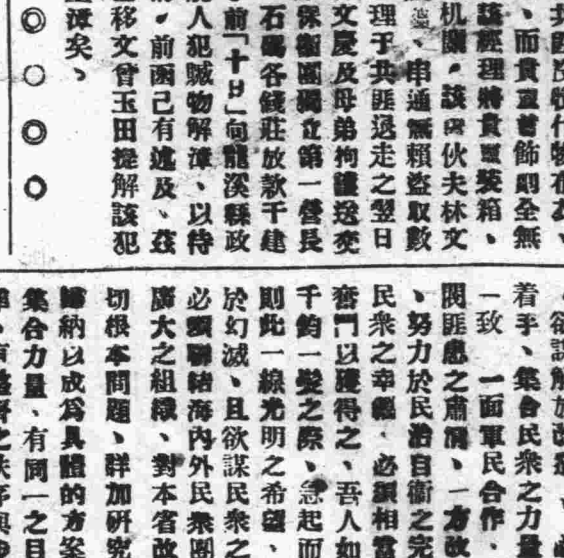 、而貴重首飾則全無
該經理將貴重裝箱、
机關，該店伙夫林文
、串通無賴盜取數
理于共匪退走之翌日
文慶及母弟拘獲送交
保衛團獨立第一營長
石碼各錢莊放款千建
前「十日」向龍溪縣政
人犯贓物解漳、以待
，前函已有述及、茲
移文曾玉田提解該犯
漳矣、
◎○◎○
着手、集合民衆之力量
一致 一面軍民合作、
閩匪患之肅清、一方改
、努力於民治自衛之完
民衆之幸福、必須相當
奮鬥以獲得之、吾人如
千鈞一髮之際、急起而
則此一線光明之希望、
於幻滅、且欲謀民衆之
必須聯結海內外民衆團
廣大之組織、對本省改
切根本問題、詳加研究
歸納以成爲具體的方案
集合力量、有同一之目